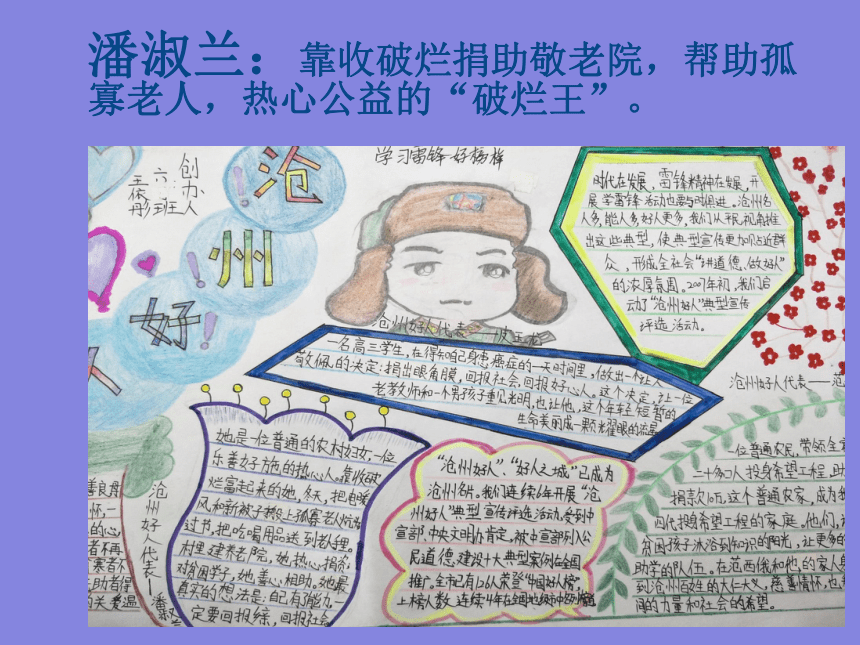 潘淑兰：靠收破烂捐助敬老院，帮助孤
寡老人，热心公益的“破烂王”。
创办人
六二班
王依彤
沧州好人
学习雷锋好榜样
时代在发展，雷锋精神在发展，开
展学雷锋活动也要与时俱进。沧州名
人多，能人多，好人更多，我们从平民视角推
出这些典型，使典型宣传更加贴近群
众，形成全社会“讲道德、做好人”
的浓厚氛围。2007年初，我们启
动了“沧州好人”典型宣传
评选活动。
沧州好人代表
一名高三学生，在得知自己身患癌症的一天时间里，做出一个让人
敬佩的决定：捐出眼角膜，回报社会，回报好心人。这个决定，让一位
老教师和一个男孩子重见光明，也让他，这个年轻短暂的
生命美丽成一颗光耀眼的流星
沧州好人代表——范
她是一位普通的农村妇女，一位
乐善好施的热心人。靠收破
烂富起来的她，冬天，把春暖
风和新被子送上孤寡老人炕为
过节，把吃喝用品送到老人手里。
村里建养老院，她热心捐资
对贫困学子，她善心相助。她最
真实的想法是：自己有了能力，一
定要回报综，回报社会
沧州好人代表—潘淑兰
善良盘
怀，一
的心，
者不再
寒者不
，助者得
的关爱温
“沧州好人”、“好人之城”已成为
沧州名片。我们连续6年开展“沧
州好人”典型宣传评选活动，受到中
宣部、中央文明办肯定，被中宣部列入公
民道德建设十大典型案例在全国
推广。全市已有上榜“中国好人榜”，
上榜人数连续4年在全国地级市中
一位普通农民，带领全家
二十多口人投身希望工程，助
捐款10万，这个普通农家，成为我
四代投身希望工程的家庭。他们，让
贫困孩子沐浴到知识的阳光，让更多的
助学的队伍。在范西俄和他的家人身
到沧州百姓的大仁大义，慈善情怀，也
间的力量和社会的希望。